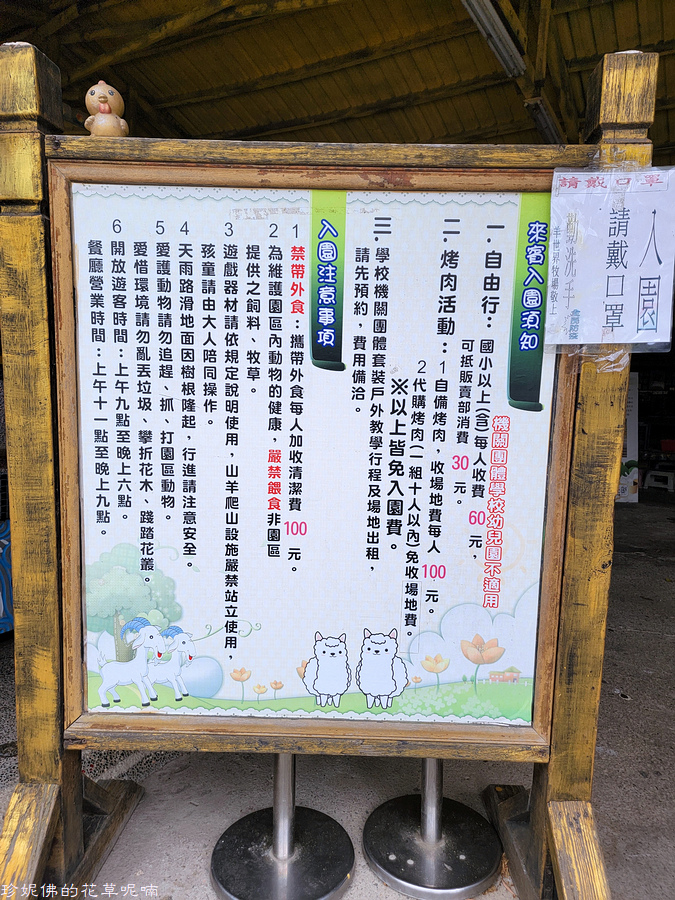 請戴口罩
入園
請戴口罩
勤洗手
全民防疫
羊世界牧場敬上
來賓入園須知
機關團體學校幼兒園不適用
一.自由行：國小以上(含)每人收費60元，
可抵販賣部消費30元。
二.烤肉活動：1自備烤肉，收場地費每人100元。
2代購烤肉(一組十人以內)免收場地費。
※以上皆免入園費。
三.學校機關團體套裝戶外教學行程及場地出租，
請先預約，費用備洽。
入園注意事項
1禁帶外食：攜帶外食每人加收清潔費100元。
2為維護園區內動物的健康，嚴禁餵食非園區
提供之飼料、牧草。
3遊戲器材請依規定說明使用，山羊爬山設施嚴禁站立使用，
孩童請由大人陪同操作。
4天雨路滑地面因樹根隆起，行進請注意安全。
5愛護動物請勿追趕、抓、打園區動物。
愛惜環境請勿亂丟垃圾、攀折花木、踐踏花叢。
6開放遊客時間：上午九點至晚上六點。
餐廳營業時間：上午十一點至晚上九點。
珍妮佛的花草呢喃